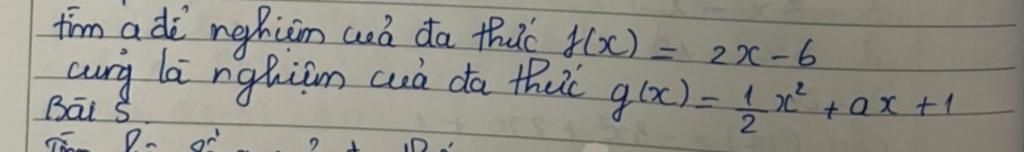 tìm a để nghiệm cuả đa thức f(x) = 2x - 6
cũng là nghiệm cuả đa thức g(x) = 1/2 x² + ax + 1
Bài 5